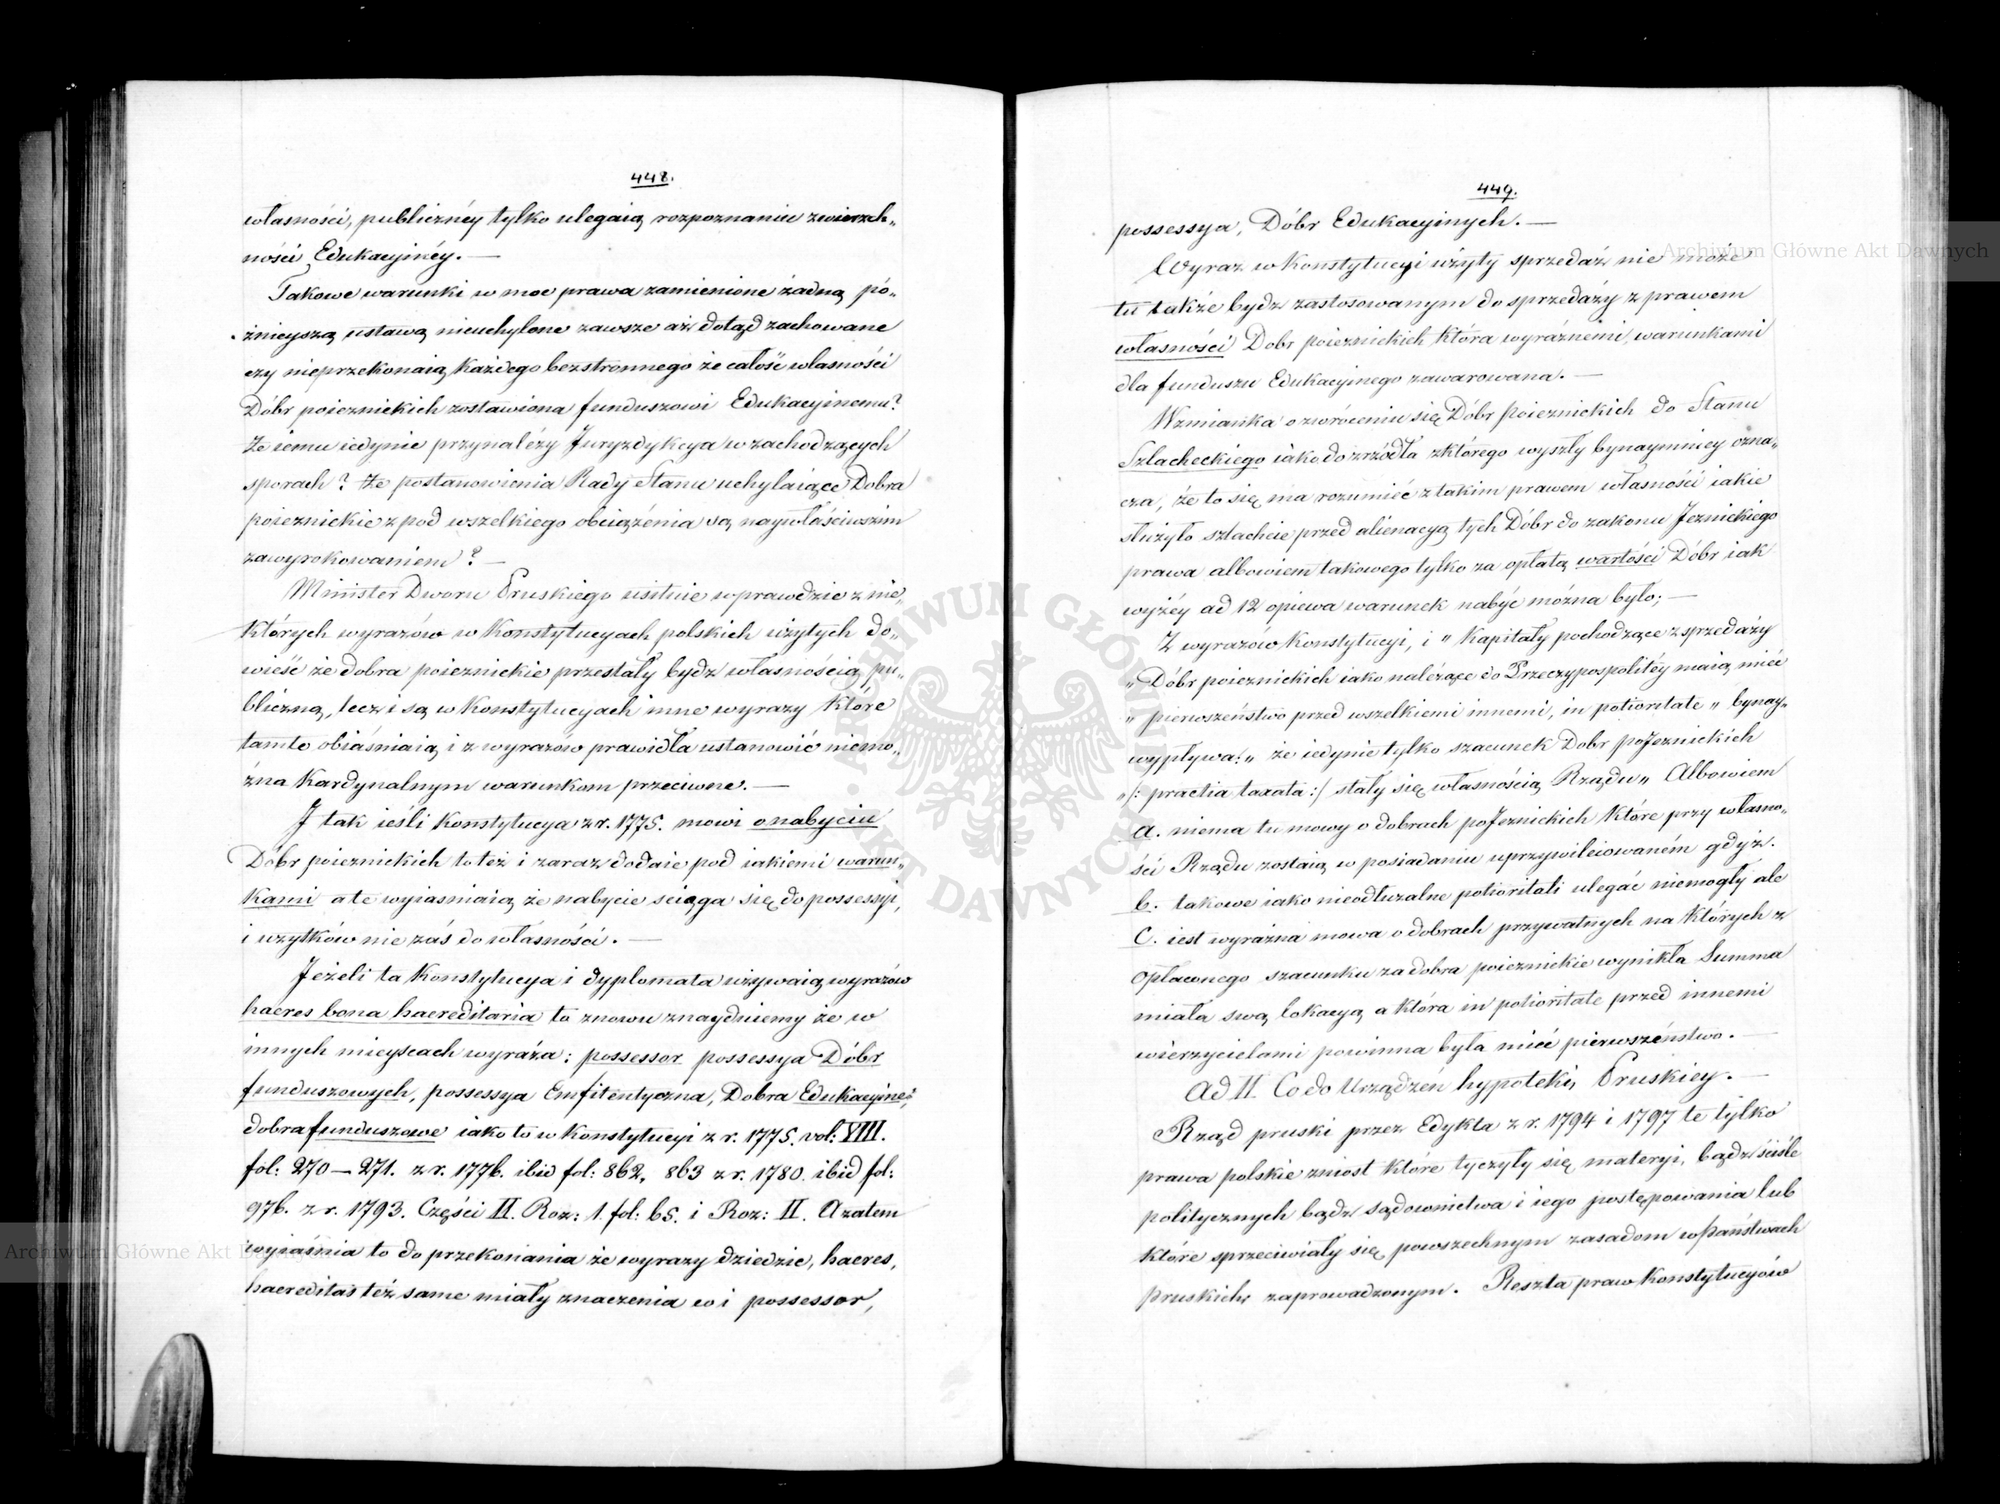 448.
własności, publicznéy tylko ulegaią rozpoznaniu zwierzch-
ności Edukacyinéy. —
Takowe warunki w moc prawa zamienione żadną pó-
źnieyszą ustawą nieuchylone zawsze aż dotąd zachowane
czy nieprzekonaią każdego bezstronnego że całość własności
Dóbr poieznickich zostawiona funduszowi Edukacyinemu?
że iemu iedynie przynależy Juryzdykcya w zachodzących
sporach? że postanowienia Rady Stanu uchylaiące Dobra
poieznickie z pod wszelkiego obciążenia są naywłaściwszim
zawyrokowaniem? —
Minister Dworu Pruskiego usilnie wprawdzie z nie-
których wyrazów w Konstytucyach polskich użytych do-
wieść że dobra poieznickie przestały bydz własnością pu-
bliczną, lecz i są w Konstytucyach inne wyrazy które
tamte obiaśniaią i z wyrazów prawidła ustanowić niemo-
żna Kardynalnym warunkom przeciwne. —
I tak ieśli Konstytucya z r. 1775. mowi o nabyciu
Dóbr poieznickich to też i zaraz dodaie pod iakiemi warun-
kami a te wyiasniaią że nabycie sciąga się do possessyi,
i użytków nie zaś do własności. —
Jeżeli ta Konstytucya i dyplomata używaią wyrazów
haeres bona haereditaria to znowu znaydniemy że w
innych mieyscach wyraża: possessor possessya Dóbr
funduszowych, possessya Emfitentyczna, Dobra Edukacyine,
dobra funduszowe iako to w Konstytucyi z r. 1775. vol: VIII.
fol: 270 — 271. z r. 1776. ibid fol: 862, 863 z r. 1780. ibid fol:
976. z r. 1793. Części II. Roz: 1. fol: 65. i Roz: II. A zatem
wyiaśnia to do przekonania że wyrazy dziedzic, haeres,
haereditas też same miały znaczenia co i possessor,
449.
possessya, Dóbr Edukacyinych. —
Wyraz w Konstytucyi użyty sprzedaż nie może
tu także bydz zastosowanym do sprzedaży z prawem
własności Dobr poieznickich która wyráźnemi warunkami
dla funduszu Edukacyinego zawarowana. —
Wzmianka o zwróceniu się Dóbr poieznickich do Stanu
Szlacheckiego iako do zrzódła z którego wyszły bynaymniey ozna-
cza, że to się ma rozumieć z takim prawem własności iakie
służyło szlachcie przed alienacyą tych Dóbr do zakonu Jeznickiego
prawa albowiem takowego tylko za opłatą wartości Dóbr iak
wyżéy ad 12 opiewa warunek nabyć można było; —
Z wyrazów Konstytucyi, i „ Kapitały pochodzące z sprzedaży
„ Dóbr poieznickich iako należące do Przeczypospolitéy maią mieć
„ pierwszeństwo przed wszelkiemi innemi, in potioritate „ bynay-
wypływa: „ że iedynie tylko szacunek Dobr poJeznickich
„ /: practia taxata :/ stały się własnością Rządu „ Albowiem
a. niema tu mowy o dobrach poJeznickich które przy własno-
ści Rządu zostaią w posiadaniu uprzywileiowaném gdyż.
b. takowe iako nieodłużalne potioritati ulegać niemogły ale
C. iest wyraźna mowa o dobrach przywatnych na których z
opłaconego szacunku za dobra poieznickie wynikła Summa
miała swą lokacyą a która in potioritate przed innemi
wierzycielami powinna była mieć pierwszeństwo. —
Ad II. Co do Urządzeń hypoteki Pruskiey. —
Rząd pruski przez Edykta z r. 1794 i 1797 te tylko
prawa polskie zniost które tyczyły się materyi, bądź ściśle
politycznych bądz sądownictwa i iego postępowania lub
które sprzeciwiały się powszechnym zasadom w Państwach
pruskich zaprowadzonym. Reszta praw Konstytucyów
Archiwum Główne Akt Dawnych
Archiwum Główne Akt Dawnych
ARCHIWUM GŁÓWNE AKT DAWNYCH